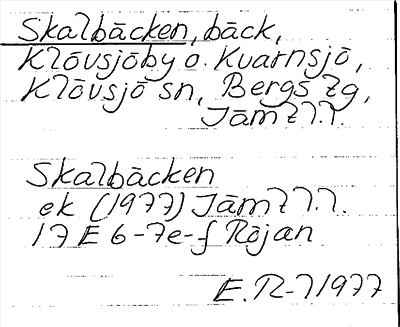 Skalbäcken, bäck,
Klövsjöby o. Kvarnsjö,
Klövsjö sn, Bergs tg,
Jämtl.l.
Skalbäcken
ek (1977) Jämtl.l.
17 E 6-7e-f Röjan
E.R-l 1977